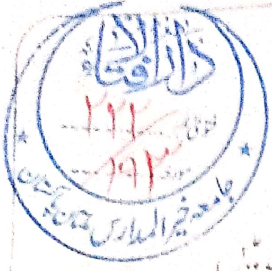 دارالافتاء
۲۲۲
۱۹۳
جامعہ خیر المدارس ملتان پاکستان